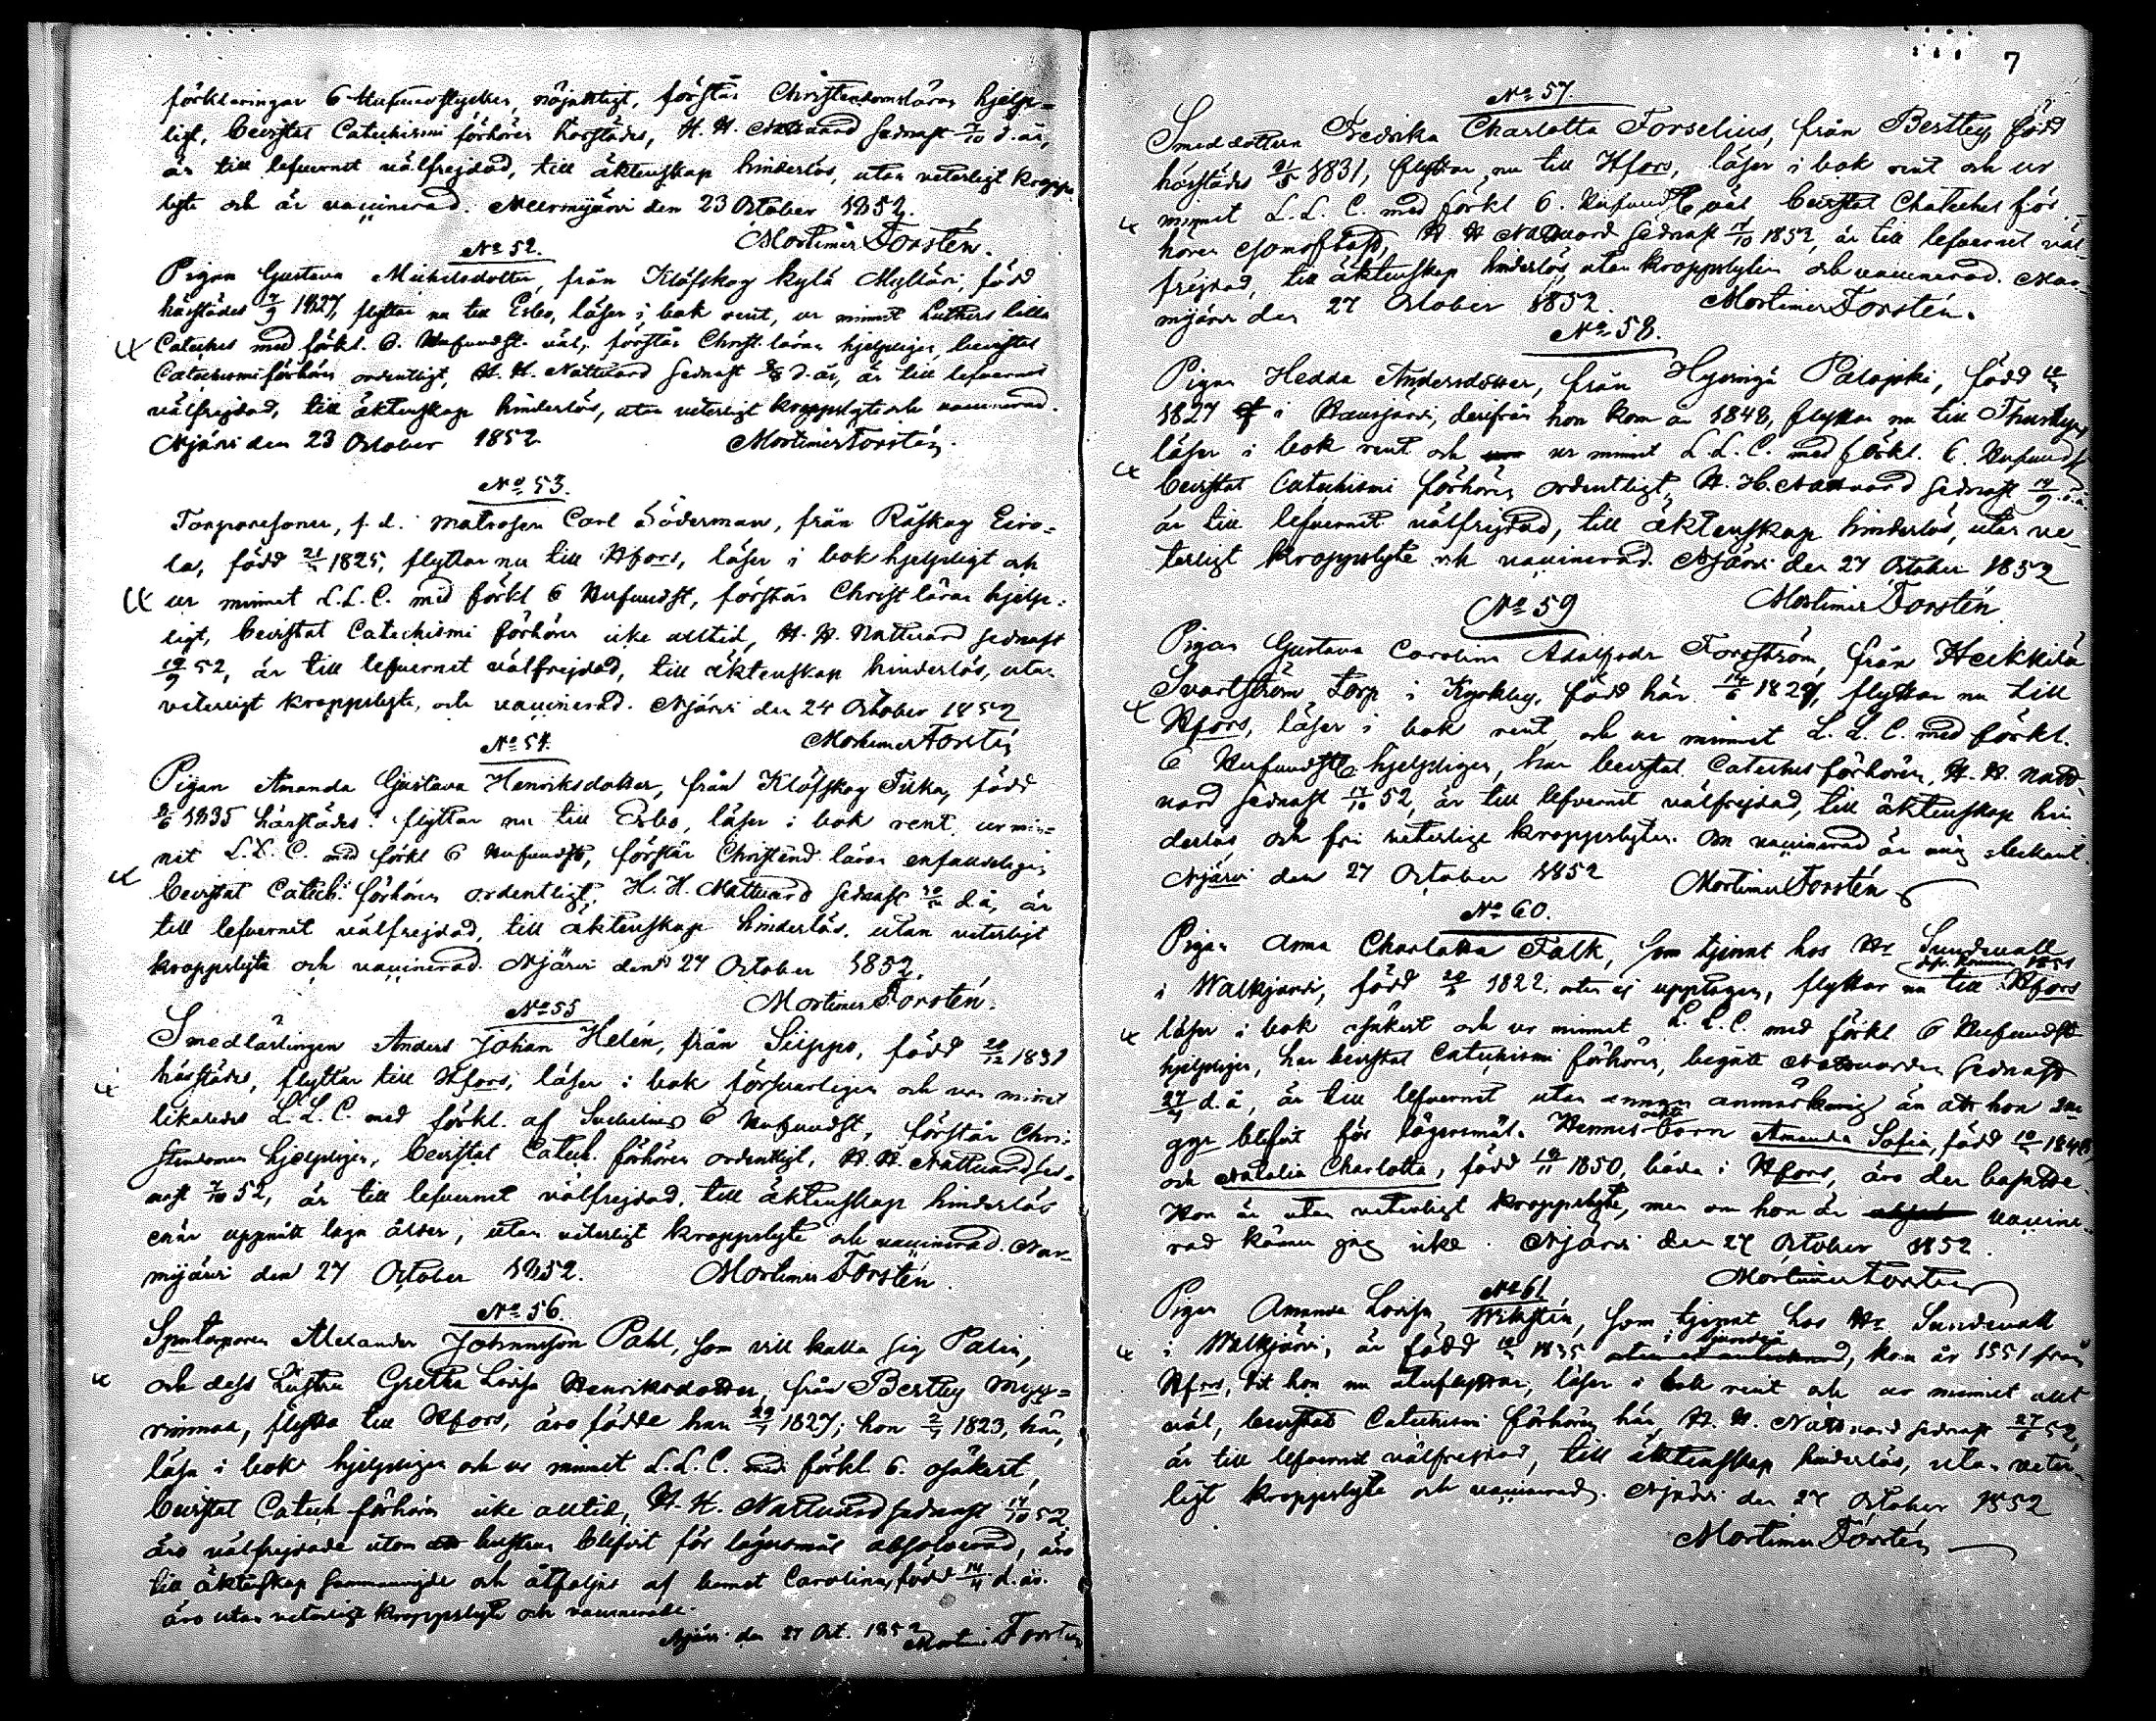 förklaringar 6 Hufvudstycken, nöjaktigt, förstår Christendomsläran hjelp=
ligt, bevistat Catechismi förhören härstädes, H. H. Nattvard sednast 3/10 d. år,
är till lefvernet välfrejdad, till äktenskap hinderlös, utan veterligt kropps
lyte och är vaccinerad. Nurmijärvi den 23 October 1852.
Mortimer Forstén.
No 52.
Pigan Gustava Michelsdotter, från Klöfskog kylä Mylläri, född
härstädes 1827, flyttar nu till Esbo, läser i bok rent, ur minnet Luthers lilla
Cateches med förkl. 6. Hufvudst. väl, förstår Christ. läran hjelpligen, bevistat
Catechismi förhören ordentligt, H. H. Nattvard sednast d. år, är till lefvernet
välfrejdad, till äktenskap hinderlös, utan veterligt kroppslyte och vaccinerad.
Njärvi den 23 October 1852 Mortimer Forstén.
No 53.
Torparesonen, f. d. Matrosen Carl Söderman, från Råskog Eiro=
la, född 1825, flyttar nu till Hfors, läser i bok hjelpligt och
ur minnet L. L. C. med förkl 6 Hufvudst, förstår Christ läran hjelp=
ligt, bevistat Catechismi förhören icke alltid, H. H. Nattvard sednast
19/9 52, är till lefvernet välfrejdad, till äktenskap hinderlös, utan
veterligt kroppslyte, och vaccinerad. Njärvi den 24 October 1852
No 54. Mortimer Forstén
Pigan Amanda Gustava Henriksdotter, från Klöfskog född
1835 härstädes. flyttar nu till Esbo, läser i bok rent, ur min=
net L. L. C. med förkl 6 Hufvudst, förstår Christend. läran enfaldeligen,
bevistat Catech. förhören ordentligt, H. H. Nattvard sednast d. å, är
till lefvernet välfrejdad, till äktenskap hinderlös, utan veterligt
kroppslyte och vaccinerad. Njärvi den 27 October 1852.
No 55 Mortimer Forstén.
Smedlärlingen Anders Johan Helén, från Seippo, född 20/12 1831
härstädes, flyttar till Hfors, läser i bok försvarligen och ur minnet
likaledes L. L. C. med förkl. af 6 Hufvudst, förstår Chri=
stendomen hjelpligen, bevistat Catech. förhören ordentligt, H. H. Nattvard sed=
nast 3/10 52, är till lefvernet välfrejdad, till äktenskap hinderlös
enär uppnått laga ålder, utan veterligt kroppslyte och vaccinerad. Nur=
mijärvi den 27 October 1852. Mortimer Forstén.
No 56.
Alexander Johansson Pahl, som vill kalla sig Palin,
och dess hustru Gretha Lovisa Henriksdotter, från Bertby
flytta till Hfors, äro födde han 1827; hon 1823, här,
läsa i bok hjelpligen och ur minnet L. L. C. med förkl. 6. osäkert,
bevistat Catech förhören icke alltid, H. H. Nattvard sednast 17/10 52.
äro välfrejdade utom hustrun blifvit för lägersmål absolverad, äro
till äktenskap sammanvigde och åtföljas af barnet Carolina, född 14/4 d. år.
äro utan veterligt kroppslyte och vaccinerade.
Njärvi den 27 Oct. 1852 Mortimer Forstén
7
No 57.
Smeddottern Fredrika Charlotta Forselius, från Bertby, född
härstädes 1831, flyttar nu till Hfors, läser i bok rent och ur
minnet L. L. C. med förkl 6. Hufvudst väl, bevistat Cateches för=
hören H. H. Nattvard sednast 17/10 1852, är till lefvernet väl=
frejdad, till äktenskap hinderlös, utan kroppslyten och vaccinerad. Nur=
mijärvi den 27 October 1852. Mortimer Forstén.
No 58.
Pigan Hedda Andersdotter, från Hyvinge Palojoki, född
1827 i Hausjärvi, derifrån hon kom år 1848, flyttar nu till Thusby,
läser i bok rent och ur minnet L. L. C. med förkl. 6. Hufvudst
bevistat Catechismi förhören ordentligt, H. H. Nattvard sednast d. å.
är till lefvernet välfrejdad, till äktenskap hinderlös, utan ve=
terligt kroppslyte och vaccinerad. Njärvi den 27 October 1852
No 59 Mortimer Forstén
Pigan Gustava Carolina Forsström, från Heikkilä
Svartström Torp i Kyrkby, född här 1829, flyttar nu till
Hfors, läser i bok rent, och ur minnet L. L. C. med förkl.
6 Hufvudst hjelpligen, har bevistat Cateches förhören, H. H. Natt=
vard sednast 17/10 52, är till lefvernet välfrejdad, till äktenskap hin
derlös och fri veterligt kroppslyten. Om vaccinerad är mig obekant.
Njärvi den 27 October 1852 Mortimer Forstén
No 60.
Pigan Anna Charlotta Falk, som tjenat hos Hr Sundevall
i Walkjärvi, född 1822. orten ej upptagen, flyttar nu till Hfors
läser i bok osäkert och ur minnet L. L. C. med förkl 6 Hufvudst
hjelpligen, har bevistat Catechismi förhören, begått Nattvarden sednast
27/4 d. å, är till lefvernet utan annan anmärkning än att hon två
ggr blifvit för lägersmål. Hennes oäkta barn Amanda Sofia, född 1848
och Natalia Charlotta, född 1850, båda i Hfors, äro der boptade.
Hon är utan veterligt kroppslyte, men om hon är vaccine=
rad känner jag icke. Njärvi den 27 October 1852.
Mortimer Forstén
No 61
Pigan Amanda Lovisa Wikstén, som tjenat hos Hr Sundevall
i Walkjärvi, är född 1835 i Sjundeå, kom år 1851 från
Hfors, dit hon nu återflyttar, läser i bok rent och ur minnet allt
väl, bevistat Catechismi förhören här, H. H. Nattvard sednast 52,
är till lefvernet välfrejdad, till äktenskap hinderlös, utan veter=
ligt kroppslyte och vaccinerad. Njärvi den 27 October 1852
Mortimer Forstén